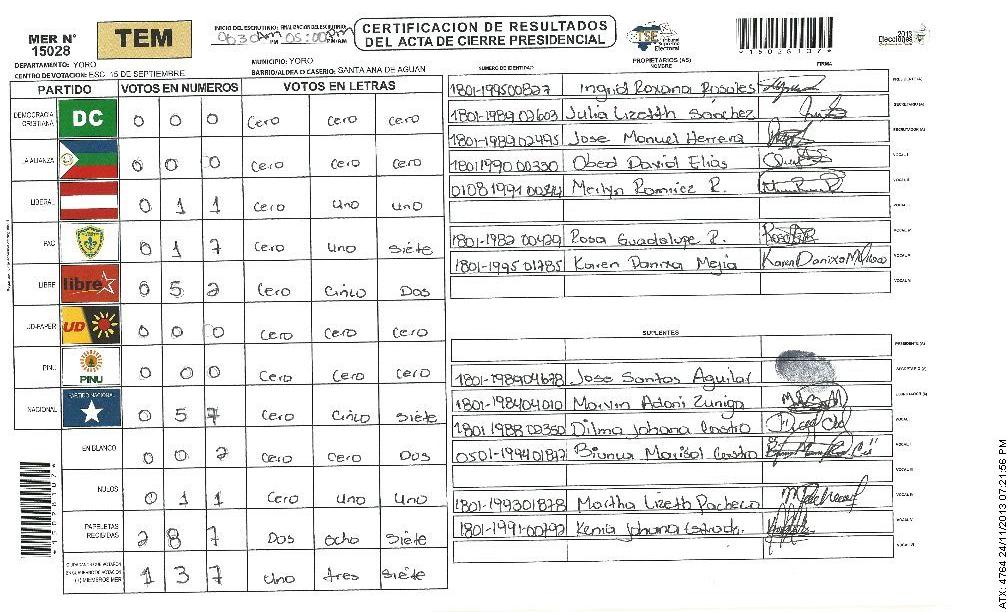 MER Nº 15028
TEM
INICIO DEL ESCRUTINIO: FINALIZACION DEL ESCRUTINIO:
0630 Am PM 05:00 pm PM/AM
CERTIFICACION DE RESULTADOS
DEL ACTA DE CIERRE PRESIDENCIAL
TSE
2013
Elecciones
*15028107*
DEPARTAMENTO: YORO
MUNICIPIO: YORO
CENTRO DE VOTACION: ESC. 15 DE SEPTIEMBRE
BARRIO/ALDEA O CASERIO: SANTA ANA DE AGUAN
PARTIDO VOTOS EN NUMEROS VOTOS EN LETRAS
DEMOCRACIA CRISTIANA DC 0 0 0 Cero cero cero
LA ALIANZA 0 0 0 Cero cero cero
LIBERAL 0 1 1 Cero uno uno
PAC 0 1 7 Cero uno siete
LIBRE libre 0 5 2 Cero Cinco Dos
UD-FAPER UD 0 0 0 Cero Cero Cero
PINU PINU 0 0 0 Cero Cero Cero
NACIONAL PARTIDO NACIONAL 0 5 7 Cero Cinco siete
EN BLANCO 0 0 2 cero cero Dos
NULOS 0 1 1 Cero uno uno
PAPELETAS RECIBIDAS 2 8 7 Dos ocho siete
1 3 7 uno tres siete
NUMERO DE IDENTIDAD PROPIETARIOS (AS) NOMBRE FIRMA
1801-199500827 Ingrid Roxana Rosales PRESIDENTE (A)
1801-1989 02603 Julia Lizeth Sanchez SECRETARIO (A)
1801-1989 02495 Jose Manuel Herrera ESCRUTADOR (A)
1801 1990 00330 Obed David Elias VOCAL I
0108 1991 Merlyn Ramirez R. VOCAL II
VOCAL III
1801-1982 00429 Rosa Guadalupe R. VOCAL IV
1801-1995 01785 Karen Danixa Mejia VOCAL V
VOCAL VI
SUPLENTES
PRESIDENTE (A)
1801-198904678 Jose Santos Aguilar SECRETARIO (A)
1801-198404010 Marvin Adoni Zuniga ESCRUTADOR (A)
1801 1988 00350 Dilma Johana Castro VOCAL I
0501-199401877 Marisol Castro VOCAL II
VOCAL III
1801-199301878 Martha Lizeth Pacheco VOCAL IV
1801-1991-00792 Kenia Johana VOCAL V
VOCAL VI
*15028107*
ATX: 4764 24/11/2013 07:21:56 PM